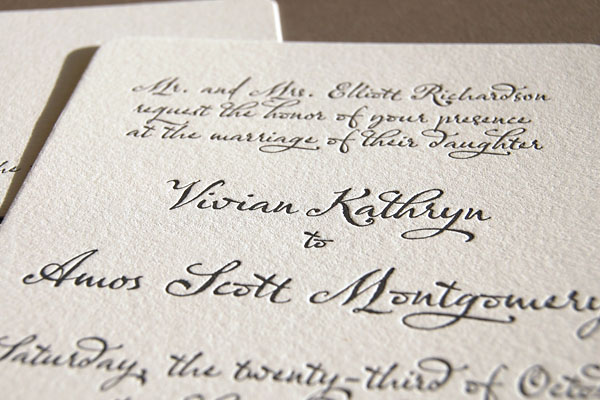 Mr. and Mrs. Elliott Richardson
request the honor of your presence
at the marriage of their daughter
Vivian Kathryn
to
Amos Scott Montgomery
Saturday, the twenty-third of Octo
he